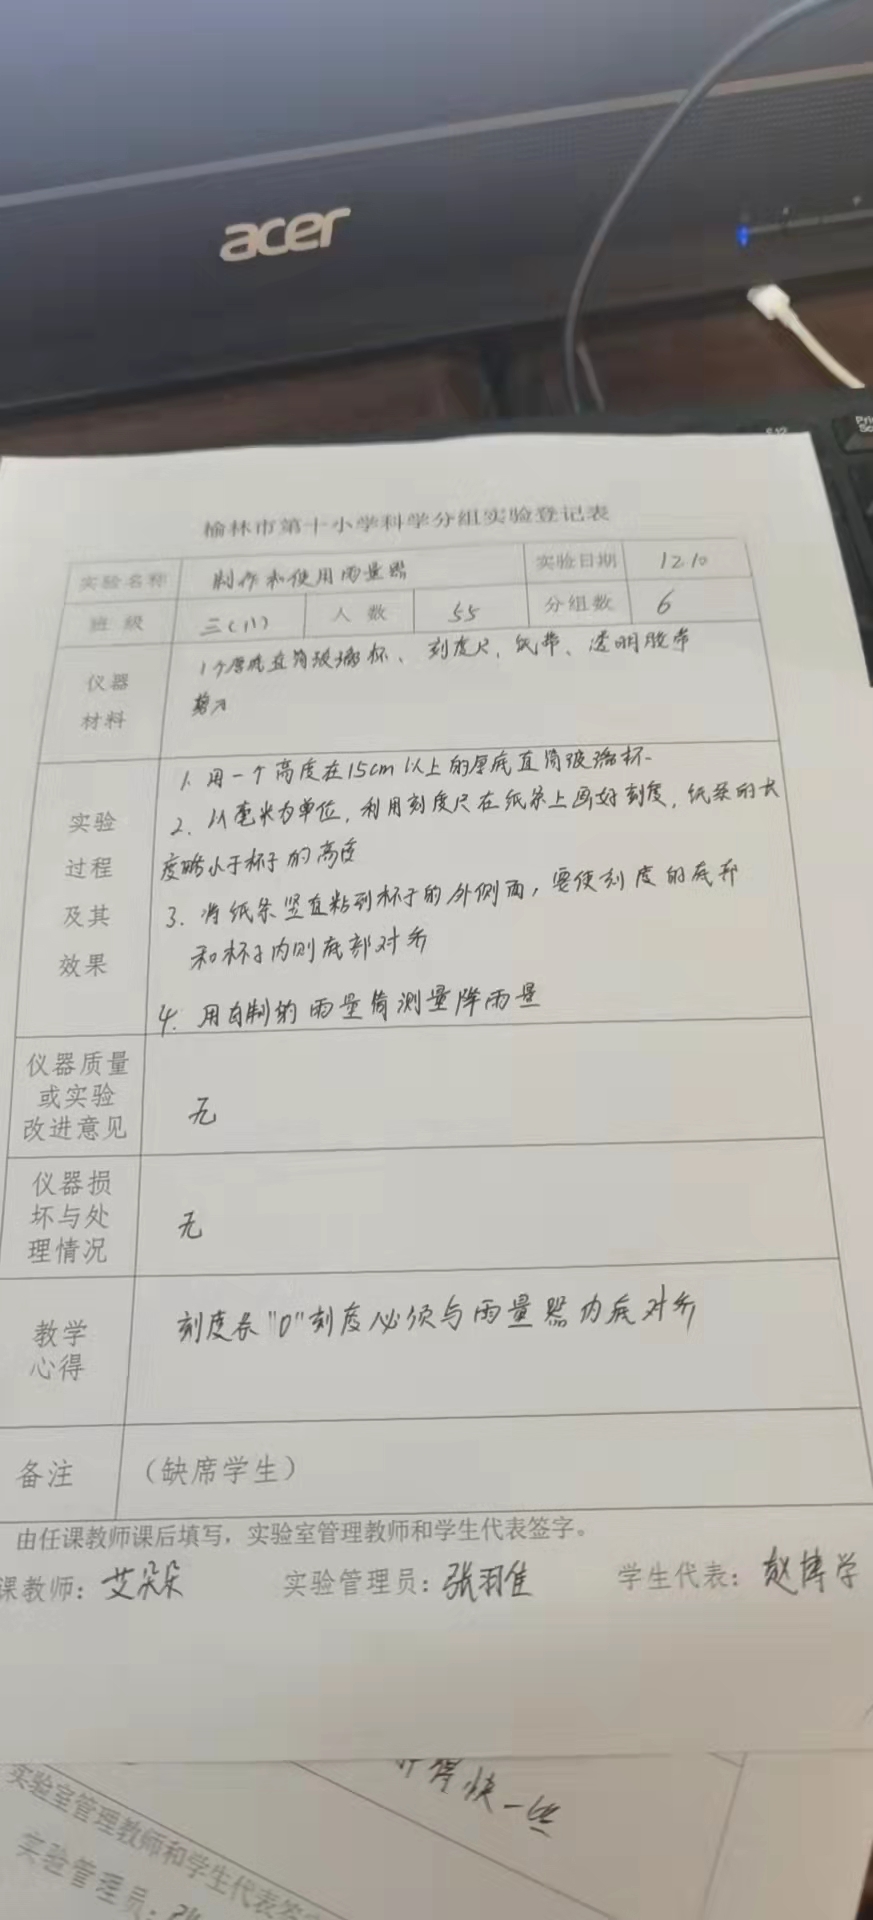 acer
榆林市第十小学科学分组实验登记表
实验名称 制作和使用雨量器 实验日期 12.10
班级 三(八) 人数 55 分组数 6
仪器材料 1个厚底直筒玻璃杯、刻度尺、纸带、透明胶带
剪刀
实验过程及其效果
1. 用一个高度在15cm以上的厚底直筒玻璃杯.
2. 以毫米为单位,利用刻度尺在纸条上画好刻度,纸条的长
度略小于杯子的高度
3. 将纸条竖直粘到杯子的外侧面,要使刻度的底部
和杯子内则底部对齐
4. 用自制的雨量筒测量降雨量
仪器质量
或实验
改进意见
无
仪器损
坏与处
理情况
无
教学
心得
刻度条"0"刻度必须与雨量器内底对齐
备注 (缺席学生)
由任课教师课后填写,实验室管理教师和学生代表签字。
课教师:艾朵朵 实验管理员:张羽佳 学生代表:赵博学
得快一些
实验室管理教师和学生代表签
实验管理员: